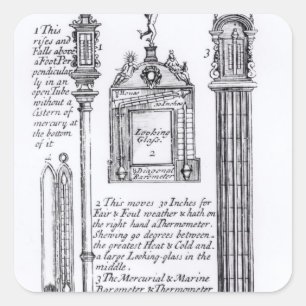 1 This
rises and
Falls above
a Foot Per
pendicular
ly in an
open Tube
without a
Cistern of
mercury at
the bottom
of it
3
30 Inches
Looking
Glass.
2
Diagonal
Barometer
2 This moves 30 Inches for
Fair & Foul weather & hath on
the right hand a Thermometer
Shewing 90 degrees between
the greatest Heat & Cold and
a large Looking-glass in the
middle.
3 The Mercurial & Marine
Barometer & Thermometer